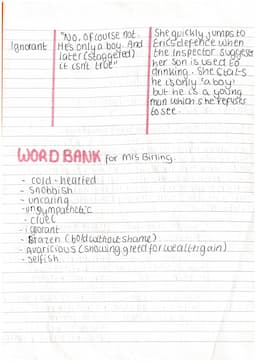 Ignorant
"No, of course not.
He's only a boy. And
later (staggered)
it isn't true"
She quickly jumps to
Eric's defence when
the Inspector suggests
her son is used to
drinking. She states
he is only 'a boy'
but he is a young
man which she refuses
to see.
WORD BANK for Mrs Birling.
- cold-hearted
- snobbish
- uncaring
- unsympathetic
- cruel
- ignorant
- Brazen (bold without shame)
- avaricious (showing greed for wealth/gain)
- selfish